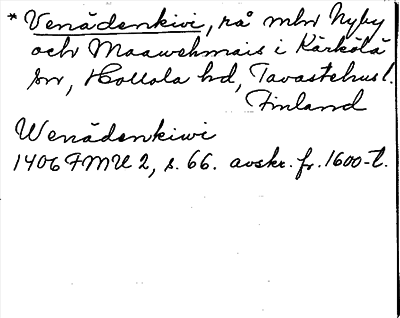 * Venädenkivi, rå mlnr Nyby
och Maawehmais i Kärkölä
sn, Hollola hd, Tavastehus l.
Finland
Wenädenkiwi
1406 FMU 2, s. 66. avskr. fr. 1600-t.